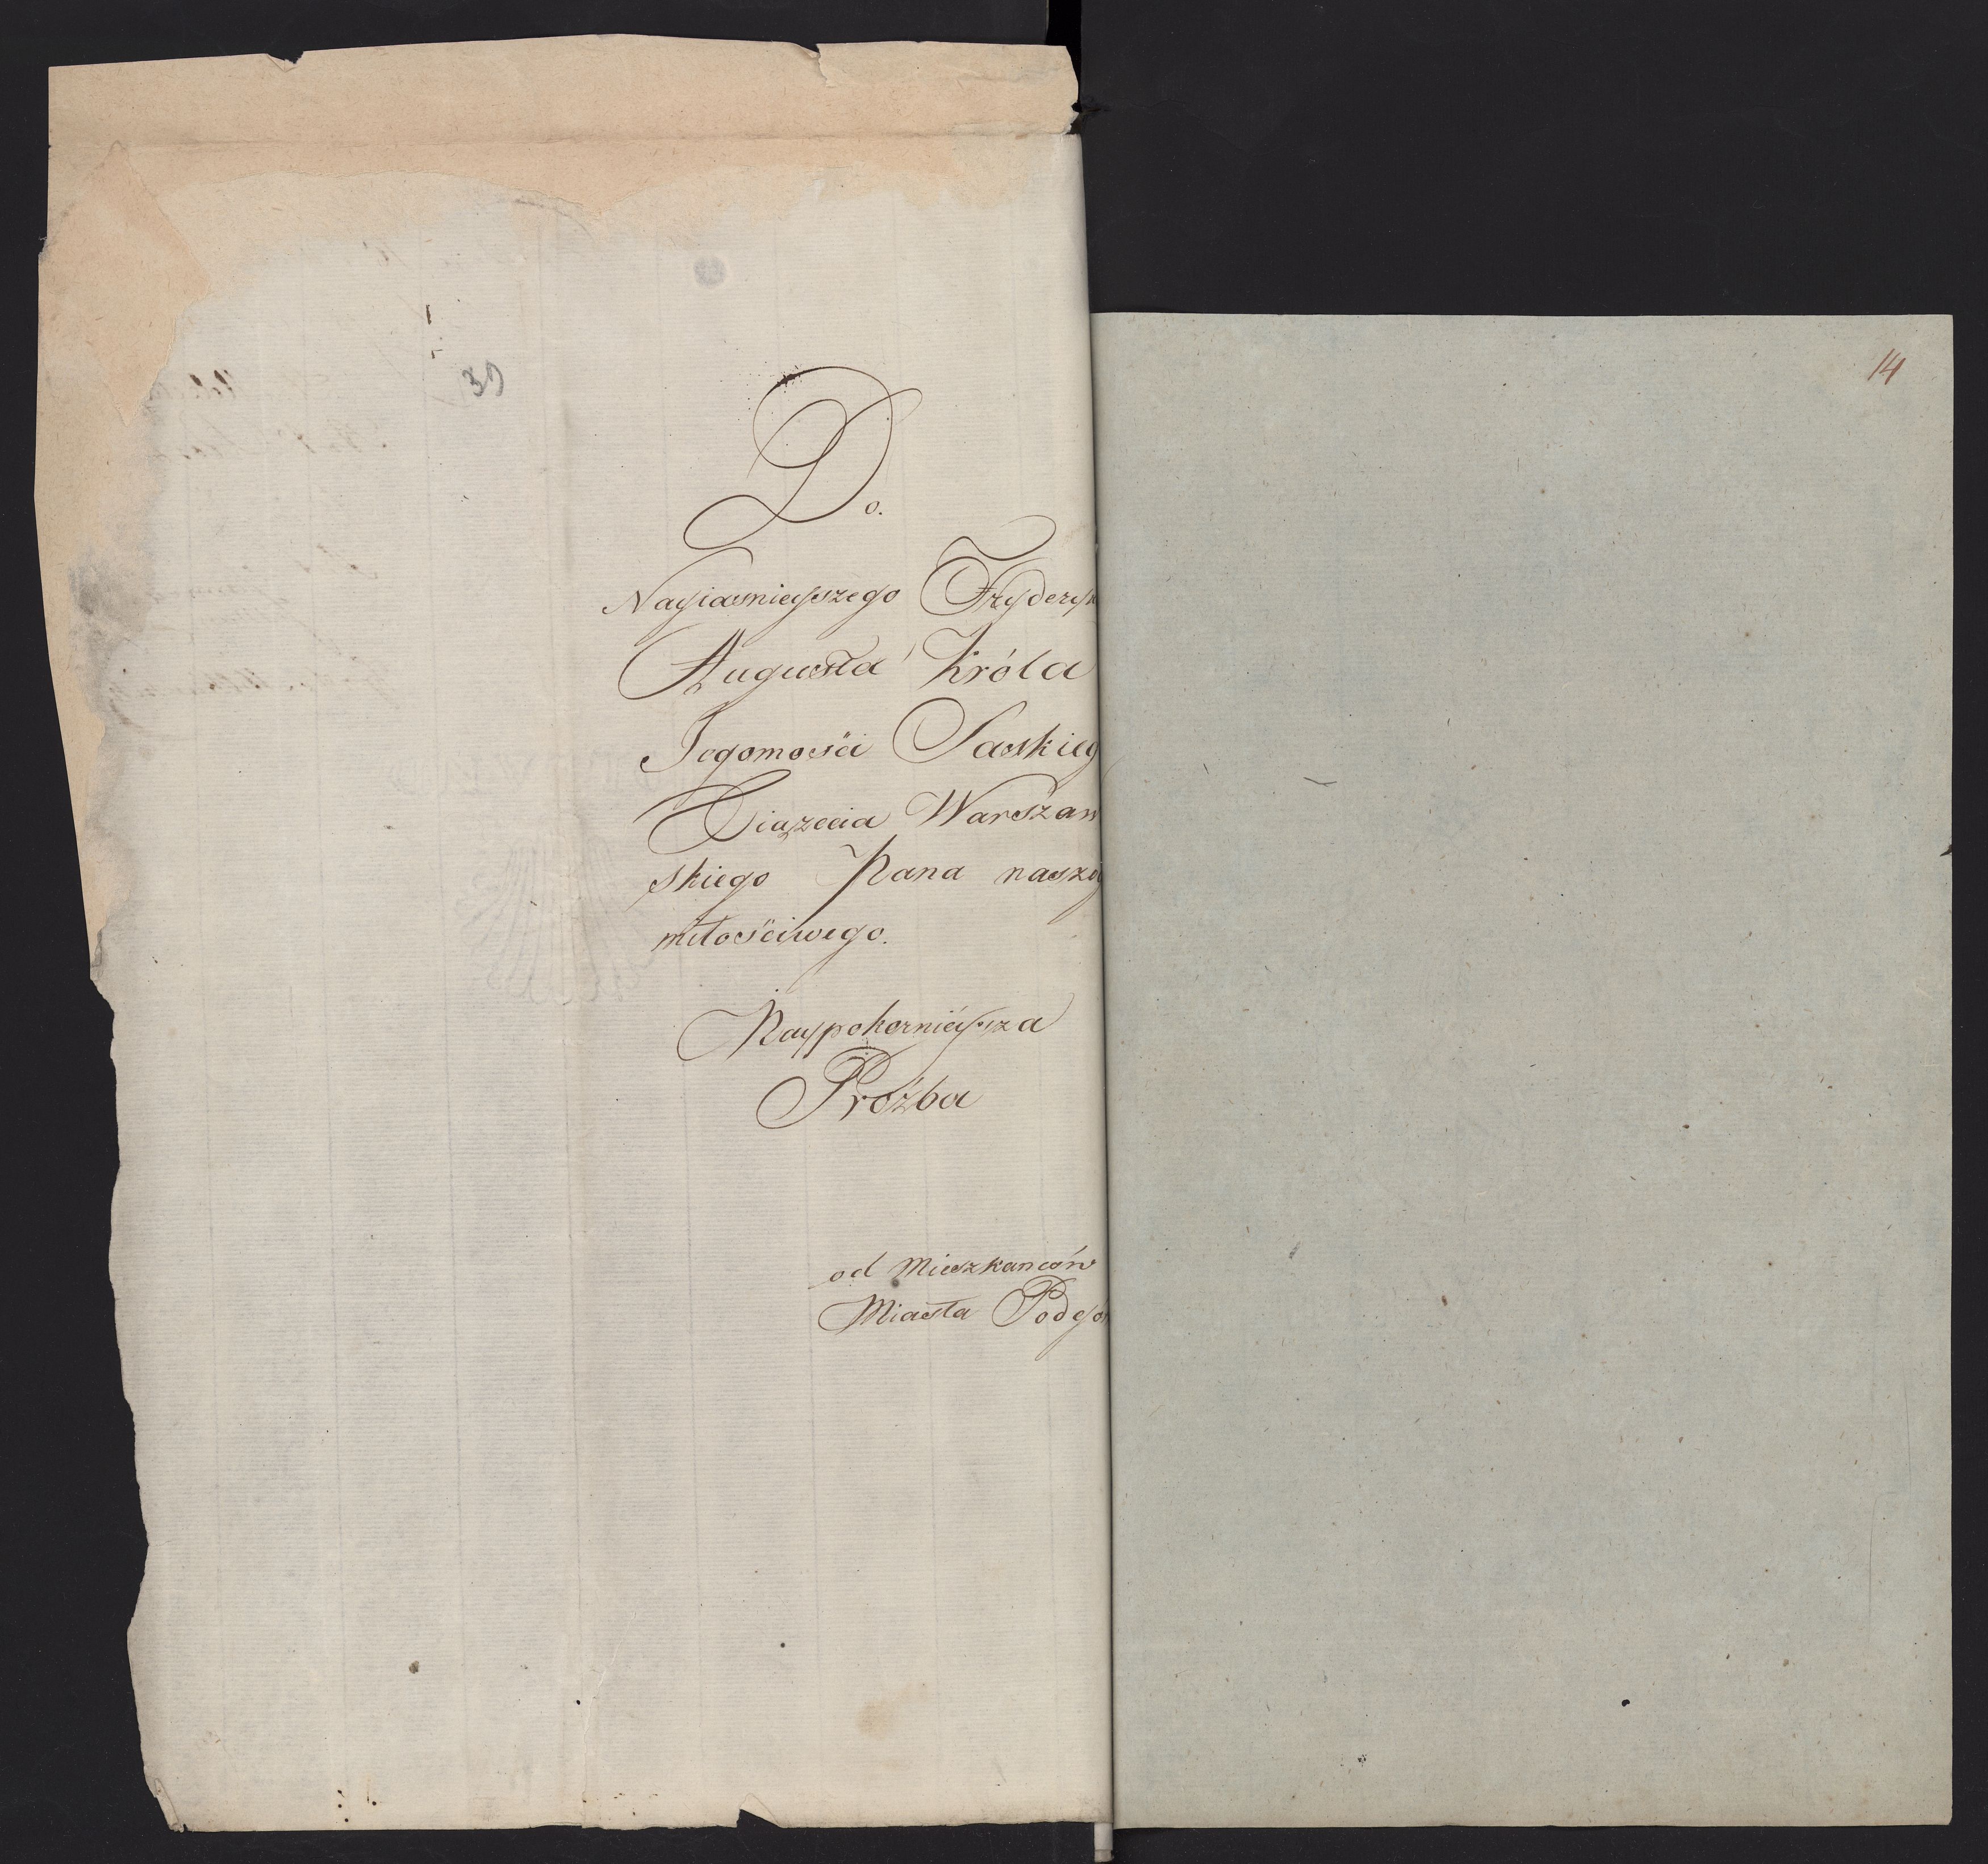 39
Do.
Nayiasnieyszego Fryderyk
Augusta Króla
Jegomości Saskieg
Xiążecia Warszaw
skiego Pana naszeg
miłościwego.
Naypokornieysza
Proźba
od Mieszkanców
Miasta Podgo
14